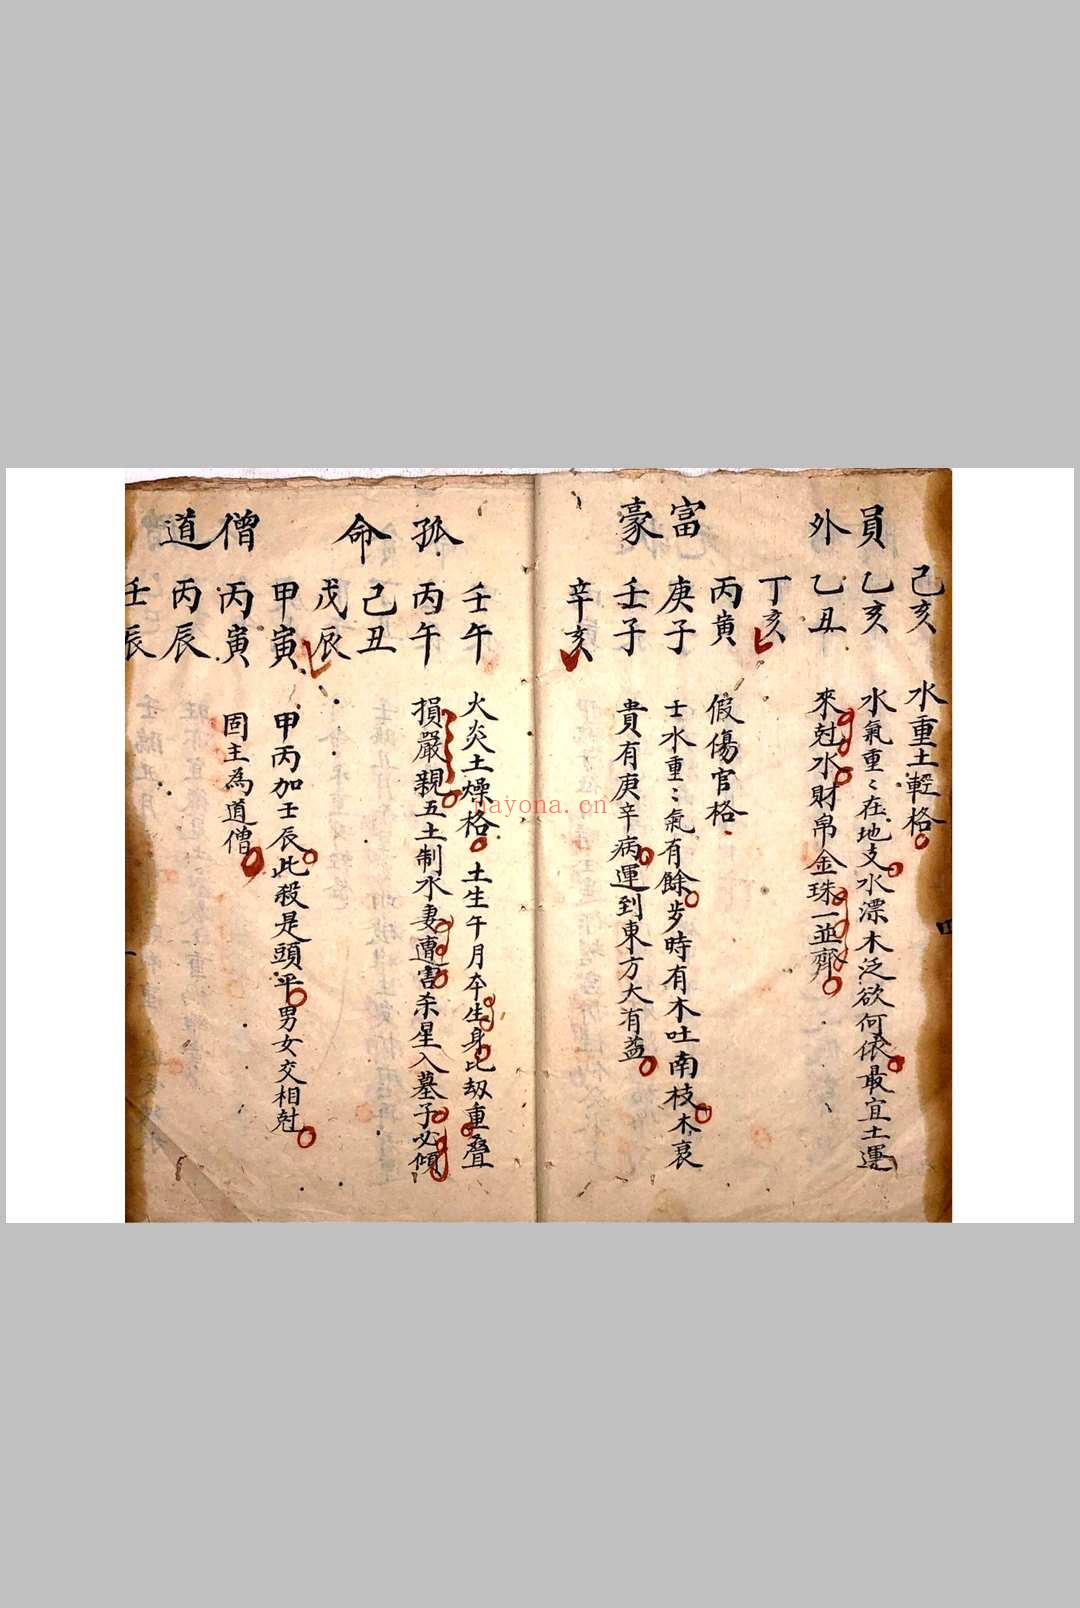 員外
己亥 水重土輊格
乙亥 水氣重〻在地支水漂木泛欲何依最宜土運
乙丑 來尅水財帛金珠一並齊
丁亥
富豪
丙寅 假傷官格
庚子 士水重〻氣有餘步時有木吐南枝木衰
壬子 貴有庚辛病運到東方大有益
辛亥
孤命
壬午 火炎土燥格 土生午月本生身比刼重叠
丙午 損嚴親五土制水妻遭害杀星入墓子必傾
己丑
戊辰
僧道
甲寅 甲丙加壬辰此殺是頭平男女交相尅
丙寅 固主為道僧
丙辰
壬辰
nayona.cn